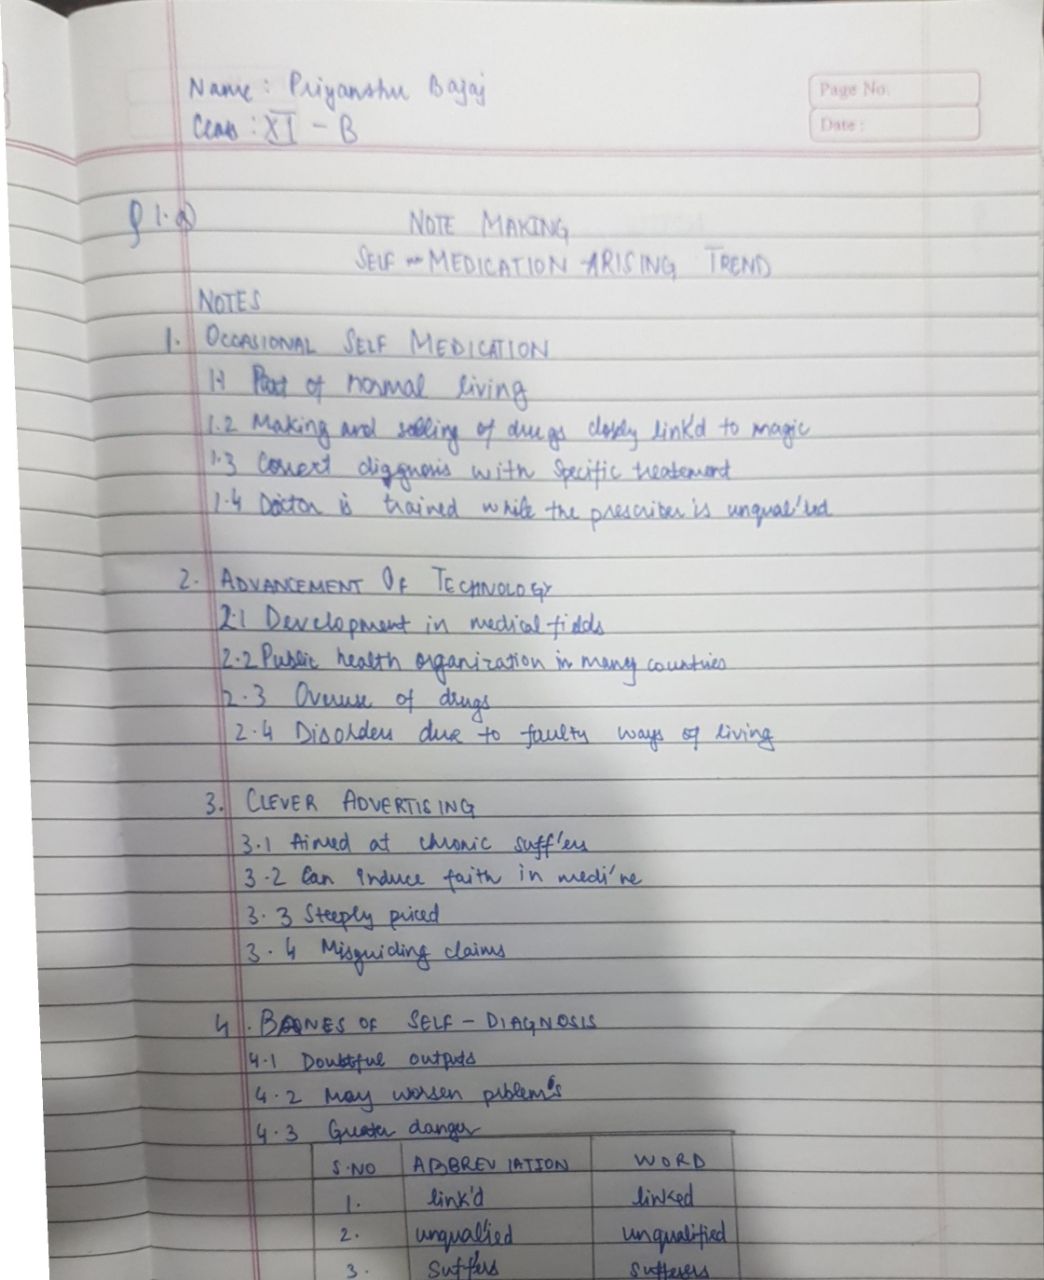 Name : Priyanshu Bajaj
Class : XI - B
Page No.
Date :
Q 1. a)
NOTE MAKING
SELF - MEDICATION ARISING TREND
NOTES
1. OCCASIONAL SELF MEDICATION
1.1 Part of normal living
1.2 Making and selling of drugs closely link'd to magic
1.3 Correct diagnosis with specific treatement
1.4 Doctor is trained while the prescriber is unqual'ied
2. ADVANCEMENT OF TECHNOLOGY
2.1 Development in medical fields
2.2 Public health organization in many countries
2.3 Overuse of drugs
2.4 Disorders due to faulty ways of living
3. CLEVER ADVERTISING
3.1 Aimed at chronic suff'ers
3.2 Can induce faith in medi'ne
3.3 Steeply priced
3.4 Misguiding claims
4. BANES OF SELF - DIAGNOSIS
4.1 Doubtful outputs
4.2 May worsen problem's
4.3 Greater danger
S.NO ABBREVIATION WORD
1. link'd linked
2. unqual'ied unqualified
3. Suff'rs Sufferers